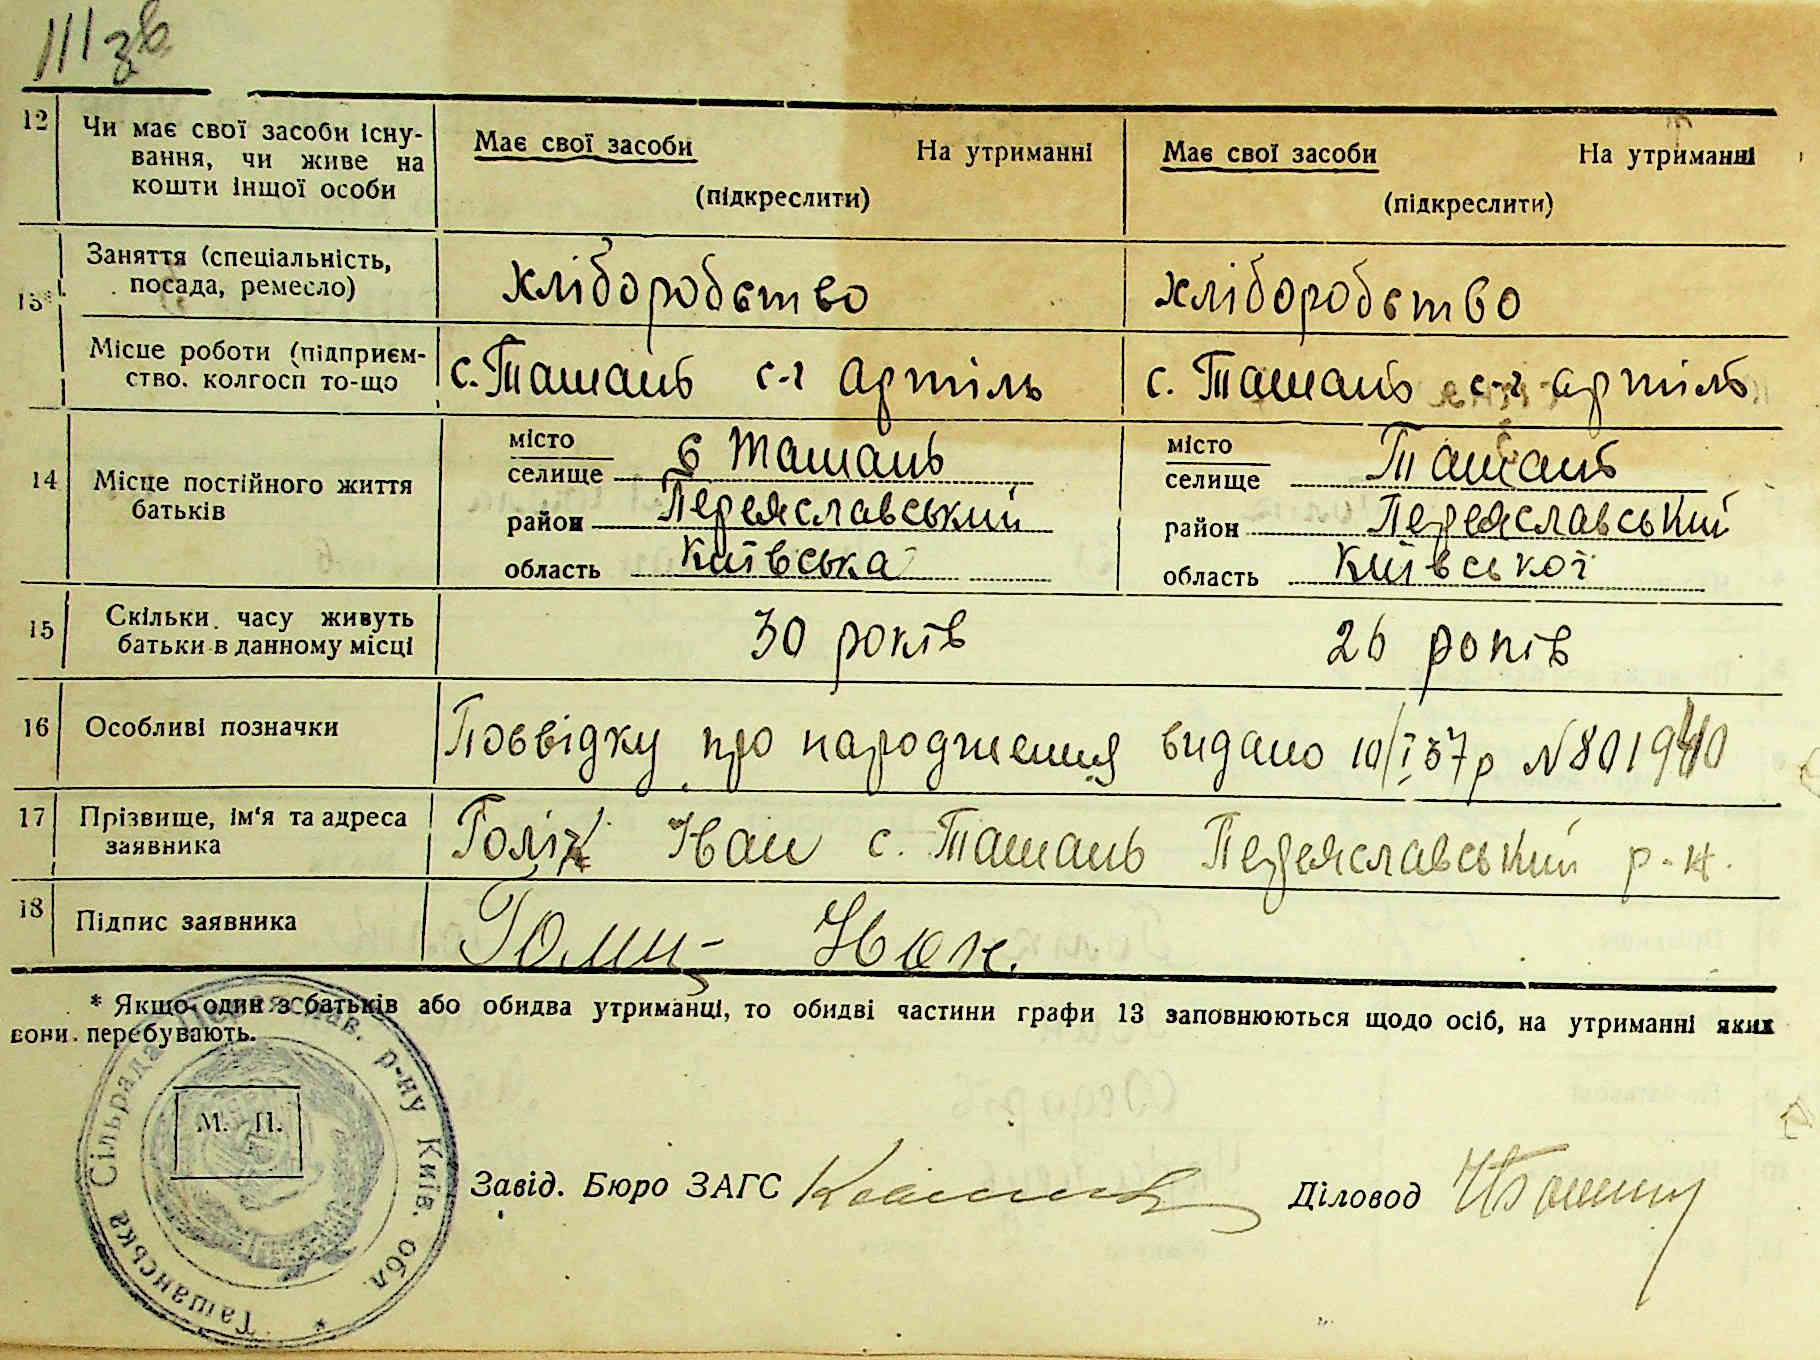 III зв
12 Чи має свої засоби існу-
вання, чи живе на
кошти іншої особи
Має свої засоби На утриманні
(підкреслити)
Має свої засоби На утриманні
(підкреслити)
13* Заняття (спеціальність,
посада, ремесло)
хліборобство
хліборобство
Місце роботи (підприєм-
ство. колгосп то-що
с. Ташань с-г артіль
с. Ташань с-г артіль
14 Місце постійного життя
батьків
місто
селище с Ташань
район Переяславський
область Київська
місто
селище Ташань
район Переяславський
область Київської
15 Скільки часу живуть
батьки в данному місці
30 років
26 років
16 Особливі позначки
Посвідку про народження видано 10/I 37р N 801940
17 Прізвище, ім'я та адреса
заявника
Іван с. Ташань Переяславський р-н.
18 Підпис заявника
* Якщо один з батьків або обидва утриманці, то обидві частини графи 13 заповнюються щодо осіб, на утриманні яких
вони перебувають.
Ташанська Сільрада Переяслав. р-ну Київ. обл.
М. П.
Завід. Бюро ЗАГС
Діловод